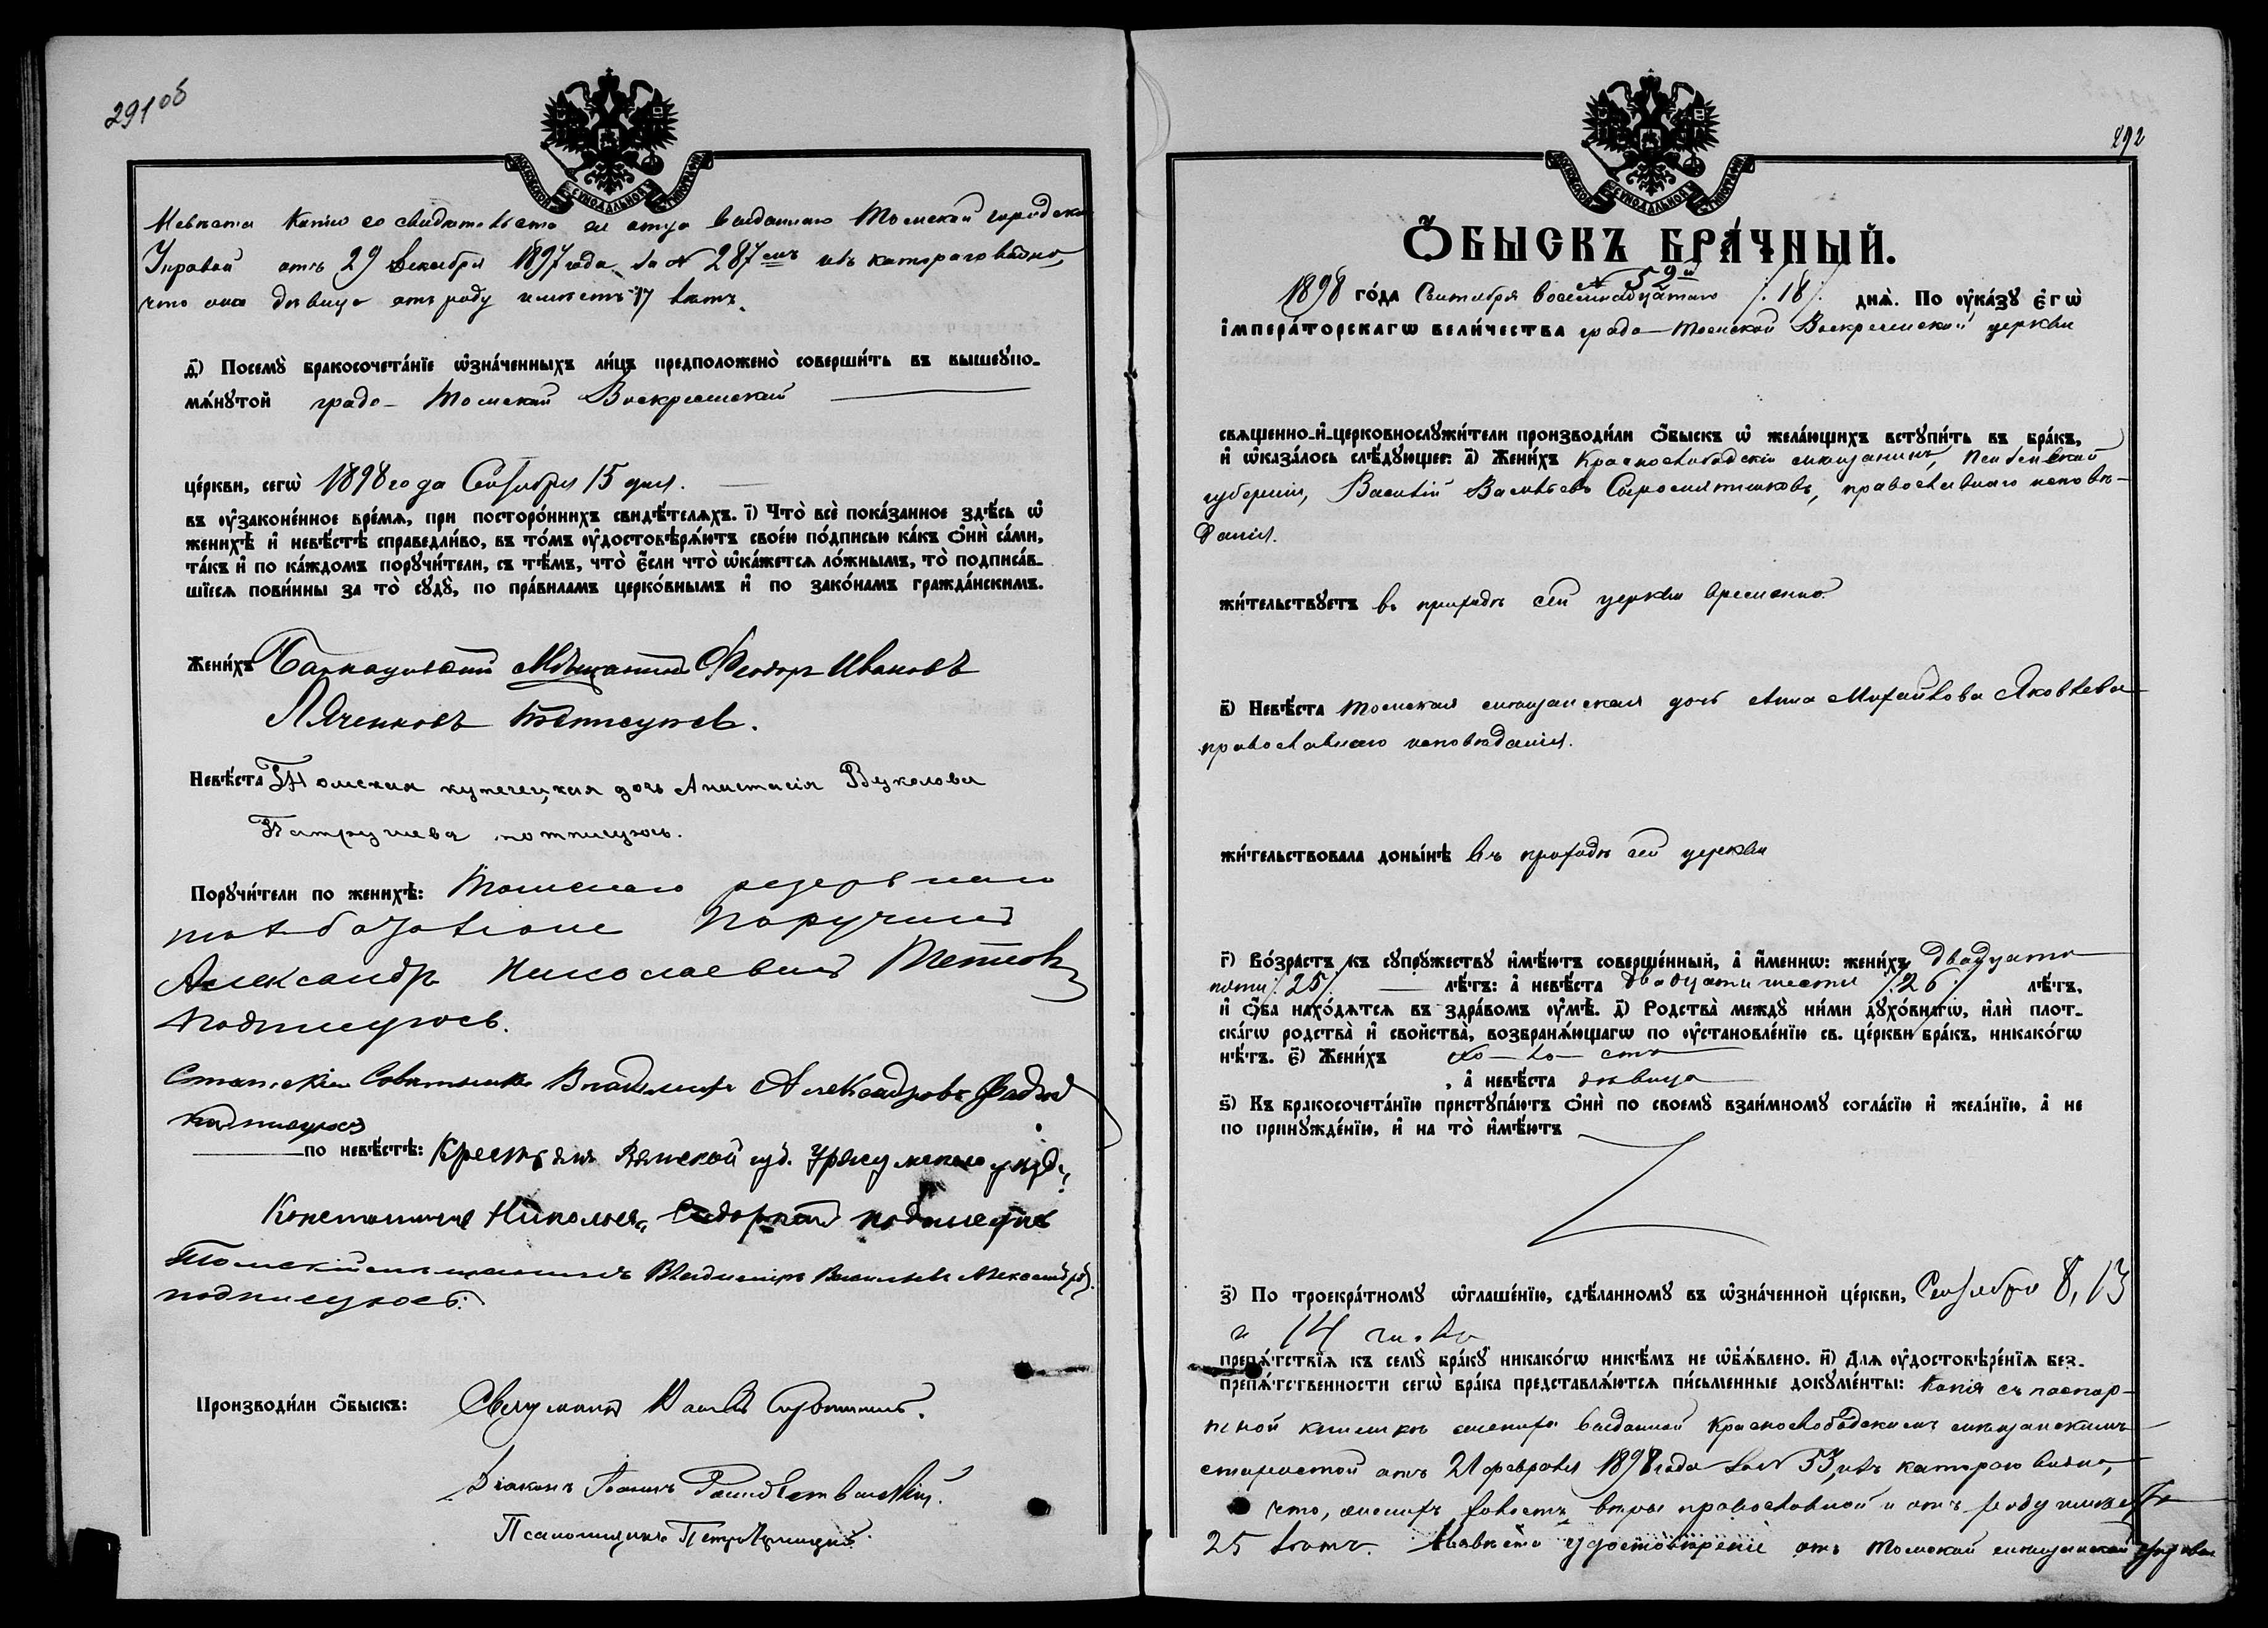 291 об
МОСКОВСКОЙ СѴНОДАЛЬНОЙ ТИПОГРАФІИ
Невѣста копію со свидѣтельства ея отца выданнаго Томской городской
Управой отъ 29 Декабря 1897 года за № 287мъ изъ котораго видно,
что она дѣвица отъ роду имѣетъ 17 лѣтъ.
д҃) Посемꙋ̀ бракосочета́нїе ѡ҆зна́ченныхъ ли́цъ предположено̀ соверши́ть въ вышеꙋпо-
мѧ́нꙋтой градо-Томской Воскресенской
це́ркви, сегѡ̀ 1898 года Сентября 15 дня.
въ ᲂу҆законе́нное вре́мѧ, при посторо́ннихъ свидѣ́телѧхъ. і҃) Что̀ всѐ пока́занное здѣ́сь ѡ҆
женихѣ̀ и҆ невѣ́стѣ справедли́во, въ то́мъ ᲂу҆достовѣрѧ́ютъ свое́ю по́дписью ка́къ ѻ҆нѝ са́ми,
та́къ и҆ по ка́ждомъ порꙋчи́тели, съ тѣ́мъ, что̀ є҆́сли что̀ ѡ҆ка́жетсѧ ло́жнымъ, то̀ подписа́в-
шїесѧ пови́нны за то̀ сꙋдꙋ̀, по пра́виламъ церко́внымъ и҆ по зако́намъ гражда́нскимъ.
Жени́хъ Мѣщанинъ Феодоръ Ивановъ
Ляченковъ
Невѣ́ста Томская купеческая дочь Анастасія Вуколова
Патрушева потписуюсь.
Порꙋчи́тели по женихѣ̀: Томскаго резервнаго
Поручикъ
Александръ Николаевичъ
Подписуюсь.
Статскій Совѣтникъ Владиміръ Александровъ
подписуюсь
по невѣ́стѣ: Крестьянинъ Вятской губ. Уржумскаго уѣзда
Константинъ Николаевъ подписуюсь
Томскій мѣщанинъ Владиміръ Васильевъ Александровъ
подписуюсь.
Производи́ли ѻ҆́быскъ: Священникъ
Діаконъ Іоаннъ Рождественскій.
Псаломщикъ Петръ
292
МОСКОВСКОЙ СѴНОДАЛЬНОЙ ТИПОГРАФІИ
Ѻ҆́БЫСКЪ БРА́ЧНЫЙ.
№ 52й
1898 го́да Сентября восемнадцатаго /.18/. днѧ̀. По ᲂу҆ка́зꙋ є҆гѡ̀
і҆мпера́торскагѡ вели́чества градо-Томской Воскресенской церкви
свѧщенно-и҆-церковнослꙋжи́тели производи́ли ѻ҆́быскъ ѡ҆ жела́ющихъ встꙋпи́ть въ бра́къ,
и҆ ѡ҆каза́лось слѣ́дꙋющее: а҃) Жени́хъ Краснослободскій мѣщанинъ, Пензенской
губерніи, Василій Васильевъ Сыромятниковъ, православнаго исповѣ-
данія.
жи́тельствꙋетъ въ приходѣ сей церкви временно.
в҃) Невѣ́ста Томская мѣщанская дочь Анна Михайлова Яковлева
православнаго исповѣданія.
жи́тельствовала доны́нѣ въ приходѣ сей церкви
г҃) Во́зрастъ къ сꙋпрꙋ́жествꙋ и҆мѣ́ютъ соверше́нный, а҆ и҆́меннѡ: жени́хъ двадцати
пяти /.25/. лѣ́тъ: а҆ невѣ́ста двадцати шести /.26/. лѣ́тъ,
и҆ ѻ҆́ба нахо́дѧтсѧ въ здра́вомъ ᲂу҆мѣ̀. д҃) Родства̀ междꙋ̀ ни́ми дꙋхо́внагѡ, и҆лѝ плот-
ска́гѡ родства̀ и҆ свойства̀, возбранѧ́ющагѡ по ᲂу҆становле́нїю св. це́ркви бра́къ, никако́гѡ
нѣ́тъ. є҃) Жени́хъ хо-ло-стъ
, а҆ невѣ́ста дѣвица
ѕ҃) Къ бракосочета́нїю пристꙋпа́ютъ ѻ҆нѝ по своемꙋ̀ взаи́мномꙋ согла́сїю и҆ жела́нїю, а҆ не
по принꙋжде́нїю, и҆ на то̀ и҆мѣ́ютъ
з҃) По троекра́тномꙋ ѡ҆глаше́нїю, сдѣ́ланномꙋ въ ѡ҆зна́ченной це́ркви, Сентября 8, 13
и 14 числа
препѧ́тствїѧ къ семꙋ̀ бра́кꙋ никако́гѡ никѣ́мъ не ѡ҆бъѧ́влено. и҃) Длѧ ᲂу҆достовѣре́нїѧ без-
препѧ́тственности сегѡ̀ бра́ка представлѧ́ютсѧ пи́сьменные докꙋме́нты: Копія съ паспор-
тной книжки жениха выданной Краснослободскимъ мѣщанскимъ
старостой отъ 21 февраля 1898 года за № 53, изъ котораго видно,
что, женихъ холостъ вѣры православной и отъ роду имѣетъ
25 лѣтъ. Невѣста удостовѣреніе отъ Томской мѣщанской управы